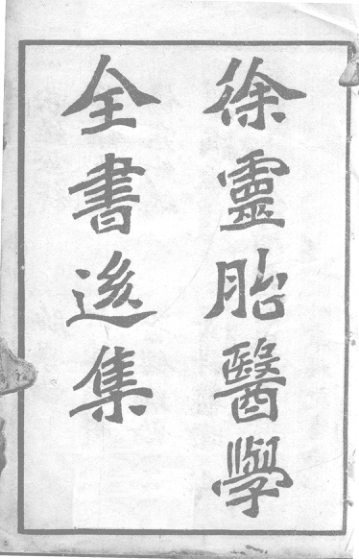 徐靈胎醫學
全書後集